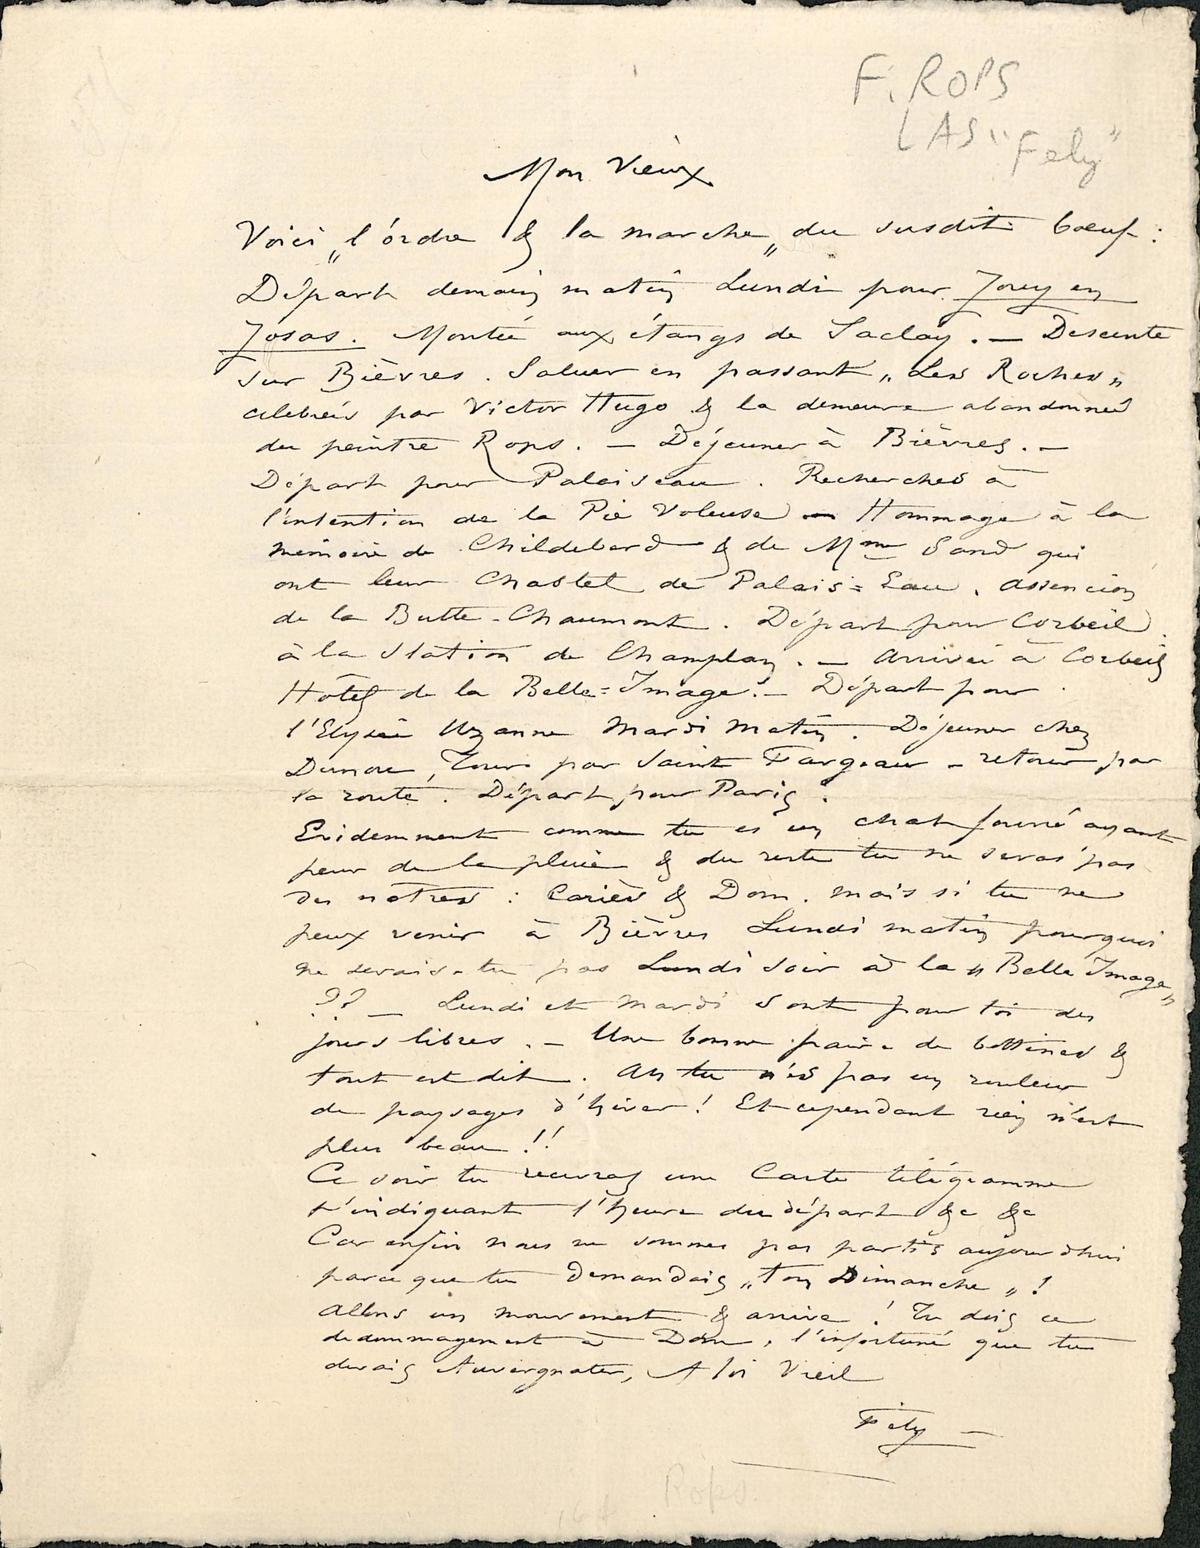 F. ROPS
LAS "Fely"
Mon Vieux
Voici „l'ordre & la marche„ du susdit boeuf :
Départ demain matin Lundi pour Jouy en
Josas. Montée aux étangs de Saclay. — Descente
sur Bièvres. Saluer en passant „Les Roches„
célébrés par Victor Hugo & la demeure abandonnée
du peintre Rops. — Déjeuner à Bièvres. —
Départ pour Palaiseau. Recherches à
l'intention de la Pie Voleuse — Hommage à la
mémoire de Childebard & de Mme Sand qui
ont leur Chastel de Palais=Eau. Assencion
de la Butte-Chaumont. Départ pour Corbeil
à la Station de Champlan. — Arrivée à Corbeil
Hôtel de la Belle=Image. — Départ pour
l'Elysée Uzanne Mardi Matin. Déjeuner chez
par Saint Fargeau – retour par
la route. Départ pour Paris.
Evidemment comme tu es un chat fourré ayant
peur de la pluie & du reste tu ne seras pas
des nôtres : Cariès & Dom. mais si tu ne
peux venir à Bièvres Lundi matin pourquoi
ne serais-tu pas Lundi soir à la „Belle Image„
?? — Lundi et Mardi sont pour toi des
jours libres. — Une bonne paire de bottines &
tout est dit. Ah tu n'es pas un rouleur
de paysages d'hiver! Et cependant rien n'est
plus beau !!
Ce soir tu recevras une Carte télégramme
t'indiquant l'heure du départ &c &c
Car enfin nous ne sommes pas partis aujourd'hui
parce que tu demandais „ton Dimanche„ !
Allons un mouvement & arrive ! Tu dois ce
dedommagement à Dom, l'infortuné que tu
devais Auvergnater, A toi Vieil
Fély —
Rops.